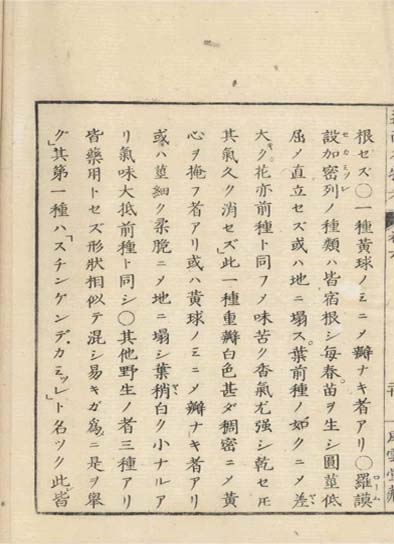 根セズ〇一種黄球ノミニメ瓣ナキ者アリ〇羅謨
設加密列ノ種類ハ皆宿根シ毎春苗ヲ生シ圓莖低
屈メ直立セズ或ハ地ニ塌ス葉前種ノ如クニメ差
大ク花亦前種ト同フメ味苦ク香氣尤强シ乾セ𪜈
其氣久ク消セズ」此一種重瓣白色甚ダ稠密ニメ黄
心ヲ掩フ者アリ或ハ黄球ノミニメ瓣ナキ者アリ
或ハ莖細ク柔脆ニメ地ニ塌シ葉稍白ク小ナルア
リ氣味大抵前種ト同シ〇其他野生ノ者三種アリ
皆藥用トセズ形狀相似テ混シ易キガ爲ニ是ヲ舉
グ」其第一種ハ「スチンゲンデ、カミツレ」ト名ツク此皆